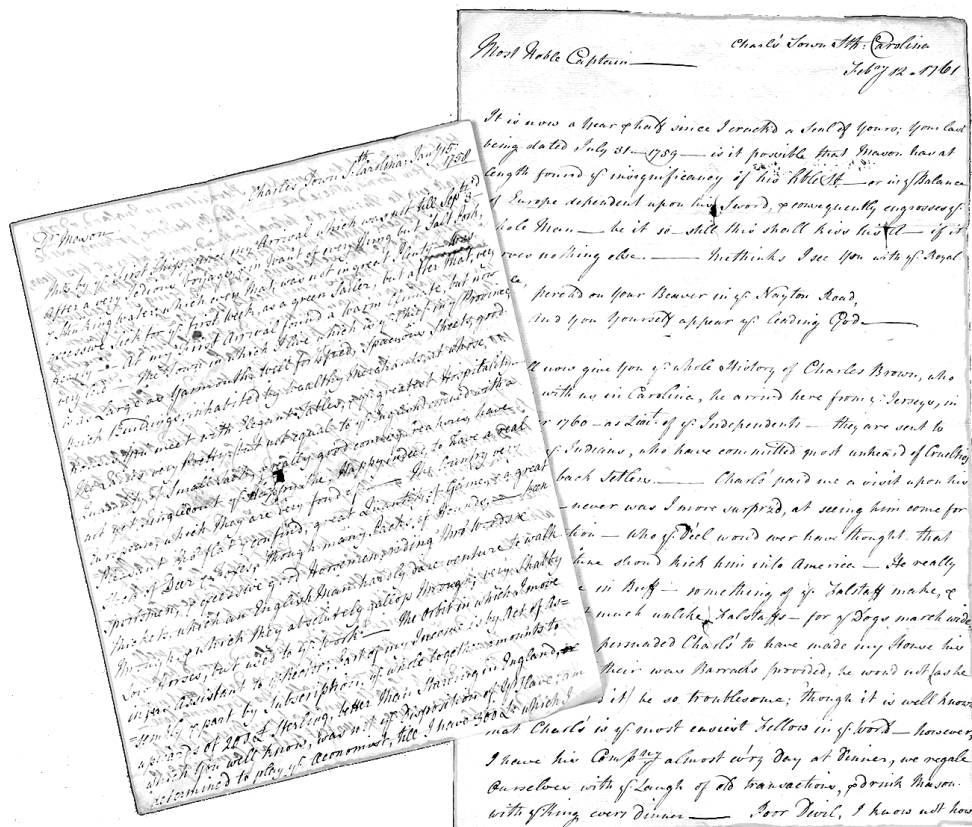 Charles Town Sth Carolina Jany 15th 1758
Dr Mason
This by ye first Ships since my Arrival which was not till Septr 3d
after a very Tedious Voyage, in want of every thing but Salt Pork,
Stinking water, which even that was not in great Plenty
excessive Sick for ye first week, as a green Sailer, but after that, very
At my first Arrival found a warm Climate, but now
The Town in which I live which is ye Chief in ye Province
is as Large as Yarmouth, well fortifyed, Spaceous Streets, good
brick Buildings, inhabited by wealthy Merchants, at whose
you meet with Elegant Tables, & ye greatest Hospitality
Ladies very pretty, but not equal to ye English
good
Europeans, which they are very fond of — The Country very
Pleasant tho' flat & confin'd, great Quantity of Game, a great
Stock of Deer & Foxes, though many Packs of Hounds,
Sportsmen, & excessive good Horsemen, riding thro' Woods &
thickets, which an English Man hardly dare venture to walk
through, & which they absolutely gallop through; very shabby
Low Horses, but used to ye work — The Orbit in which I move
is ye Assistant to ye Rector; Part of my Income is by Act of As=
sembly & part by Subscription, ye whole together amounts to
upwards of 200£ Sterling, better than Starving in England,
which you well know, was not ye disposition of yr Slave, am
determined to play ye Oeconomist, till I have 500£ which I
Charls' Town Sth: Carolina
Feby 12 - 1761
Most Noble Captain
It is now a Year & half since I crack'd a Seal of Yours; Your last
being dated July 31 — 1759 — is it possible that Mason has at
length found ye insignificancy of his — or is ye Balance
of Europe dependent upon his Sword, & consequently engrosses ye
hole Man — be it so — still this shall kiss his — if it
roves nothing else. — Methinks I see You with ye Royal
perch'd on Your Beaver in ye Nayton Road,
And you Yourself appear ye leading God.
ll now give You ye whole History of Charles Brown, who
with us in Carolina, he arriv'd here from ye Jerseys, in
r 1760 — as Lieut. of ye Independents — they are sent to
ye Indians, who have committed most unheard of Cruelties
back Setlers. — Charls' paid me a visit upon his
never was I more surpriz'd, at seeing him come for
tion — who ye Deel would ever have thought that
tune shou'd kick him into America — He really
in Buff — something of ye Falstaff make, &
much unlike Falstaffs — for ye Dogs march wide
persuaded Charls' to have made my House his
their was Barracks provided, he would not (as he
it) be so troublesome; though it is well known
that Charls' is ye most easiest Fellow in ye word — however,
I have his Company almost ev'ry Day at Dinner, we regale
Ourselves with ye Laugh of old transactions, & drink Mason
with ye King every dinner — Poor Devil, I know not how